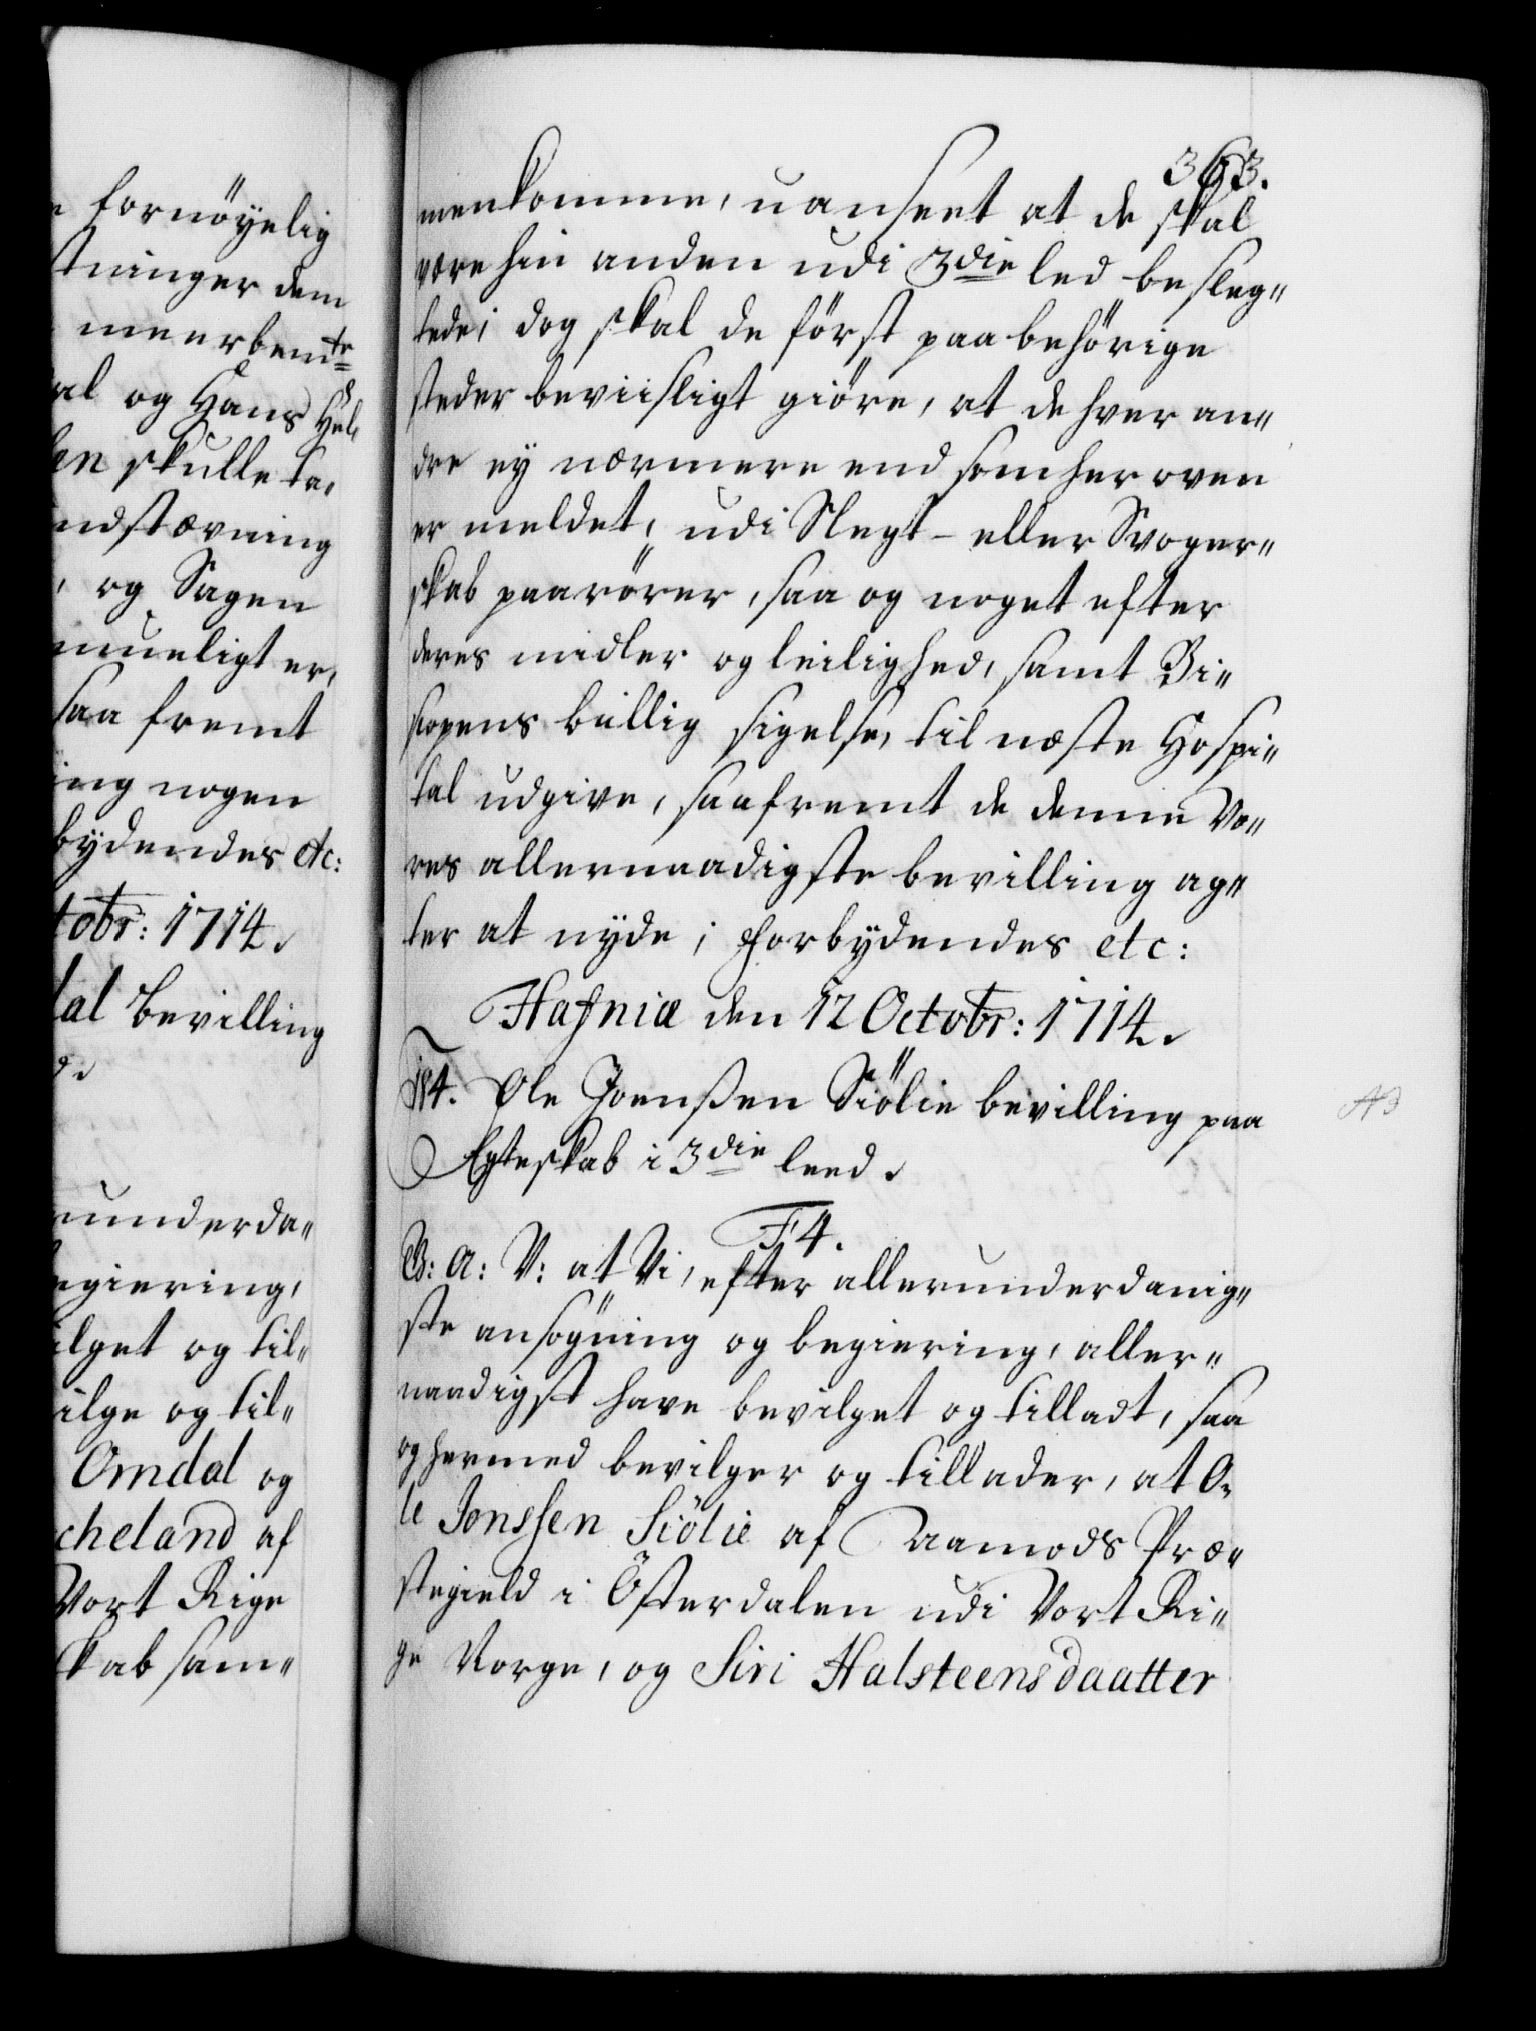 fornöyelig
tninger dem
meerbemte
al og Hans Hel
en skulle ta„
ndstævning
, og Sagen
mueligt er,
saa fremt
ing nogen
bydendes etc:
tobr: 1714.
dal Bevilling
runderda„
egiering,
ilget og til„
ilge og til„
Omdal og
cheland af
Vort Rige
skab sam„
363.
menkomme, uanseet at de skal
være hin anden udi 3die led besleg„
tede; dog skal de först paa behörige
steder beviisligt giöre, at de hver an„
dre ey nærmere end som her oven
er meldet, udi Slegt- eller Svoger„
skab paarörer, saa og noget efter
deres midler og leilighed, samt Bi„
scopens billig sigelse, til næste Hospi„
tal udgive, saafremt de denne Vo„
res allernaadigste bevilling ag„
ter at nyde; Forbydendes etc:
Hafniæ den 12 Octobr: 1714.
Ole Joenssen Siölie bevilling paa
Egteskab i 3die leed.
F4.
G: A: V: at Vi, efter allerunderdanig„
ste ansögning og begiering, aller„
naadigst have bevilget og tilladt, saa
og hermed bevilger og tillader, at O„
le Jonssen Siölie af Aamods Præ„
stegield i Österdalen udi Vort Ri„
ge Norge, og Siri Halsteensdaatter